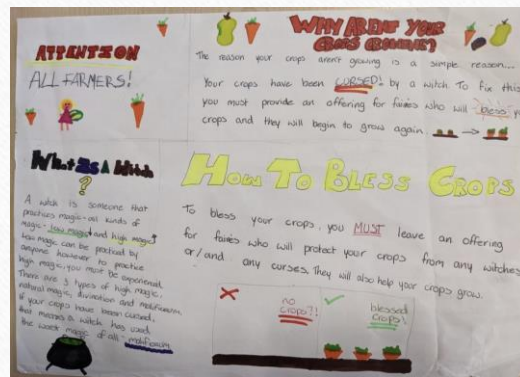 ATTENTION
ALL FARMERS!
WHY ARENT YOUR
CROPS GROWING?
The reason your crops aren't growing is a simple reason...
Your crops have been CURSED! by a witch. To fix this
you must provide an offering for fairies who will "bless"
crops and they will begin to grow again.
What Is A Witch
?
A witch is someone that
practices magic - all kinds of
magic - low magic and high magic
low magic can be practiced by
anyone however to practice
high magic, you must be experienced.
There are 3 types of high magic;
natural magic, divination and maleficium.
If your crops have been cursed,
that means a witch has used
the worst magic of all - maleficium
HOW TO BLESS CROPS
To bless your crops, you MUST leave an offering
for fairies who will protect your crops from any witches
or/and any curses. They will also help your crops grow.
no
crops?!
blessed
crops!